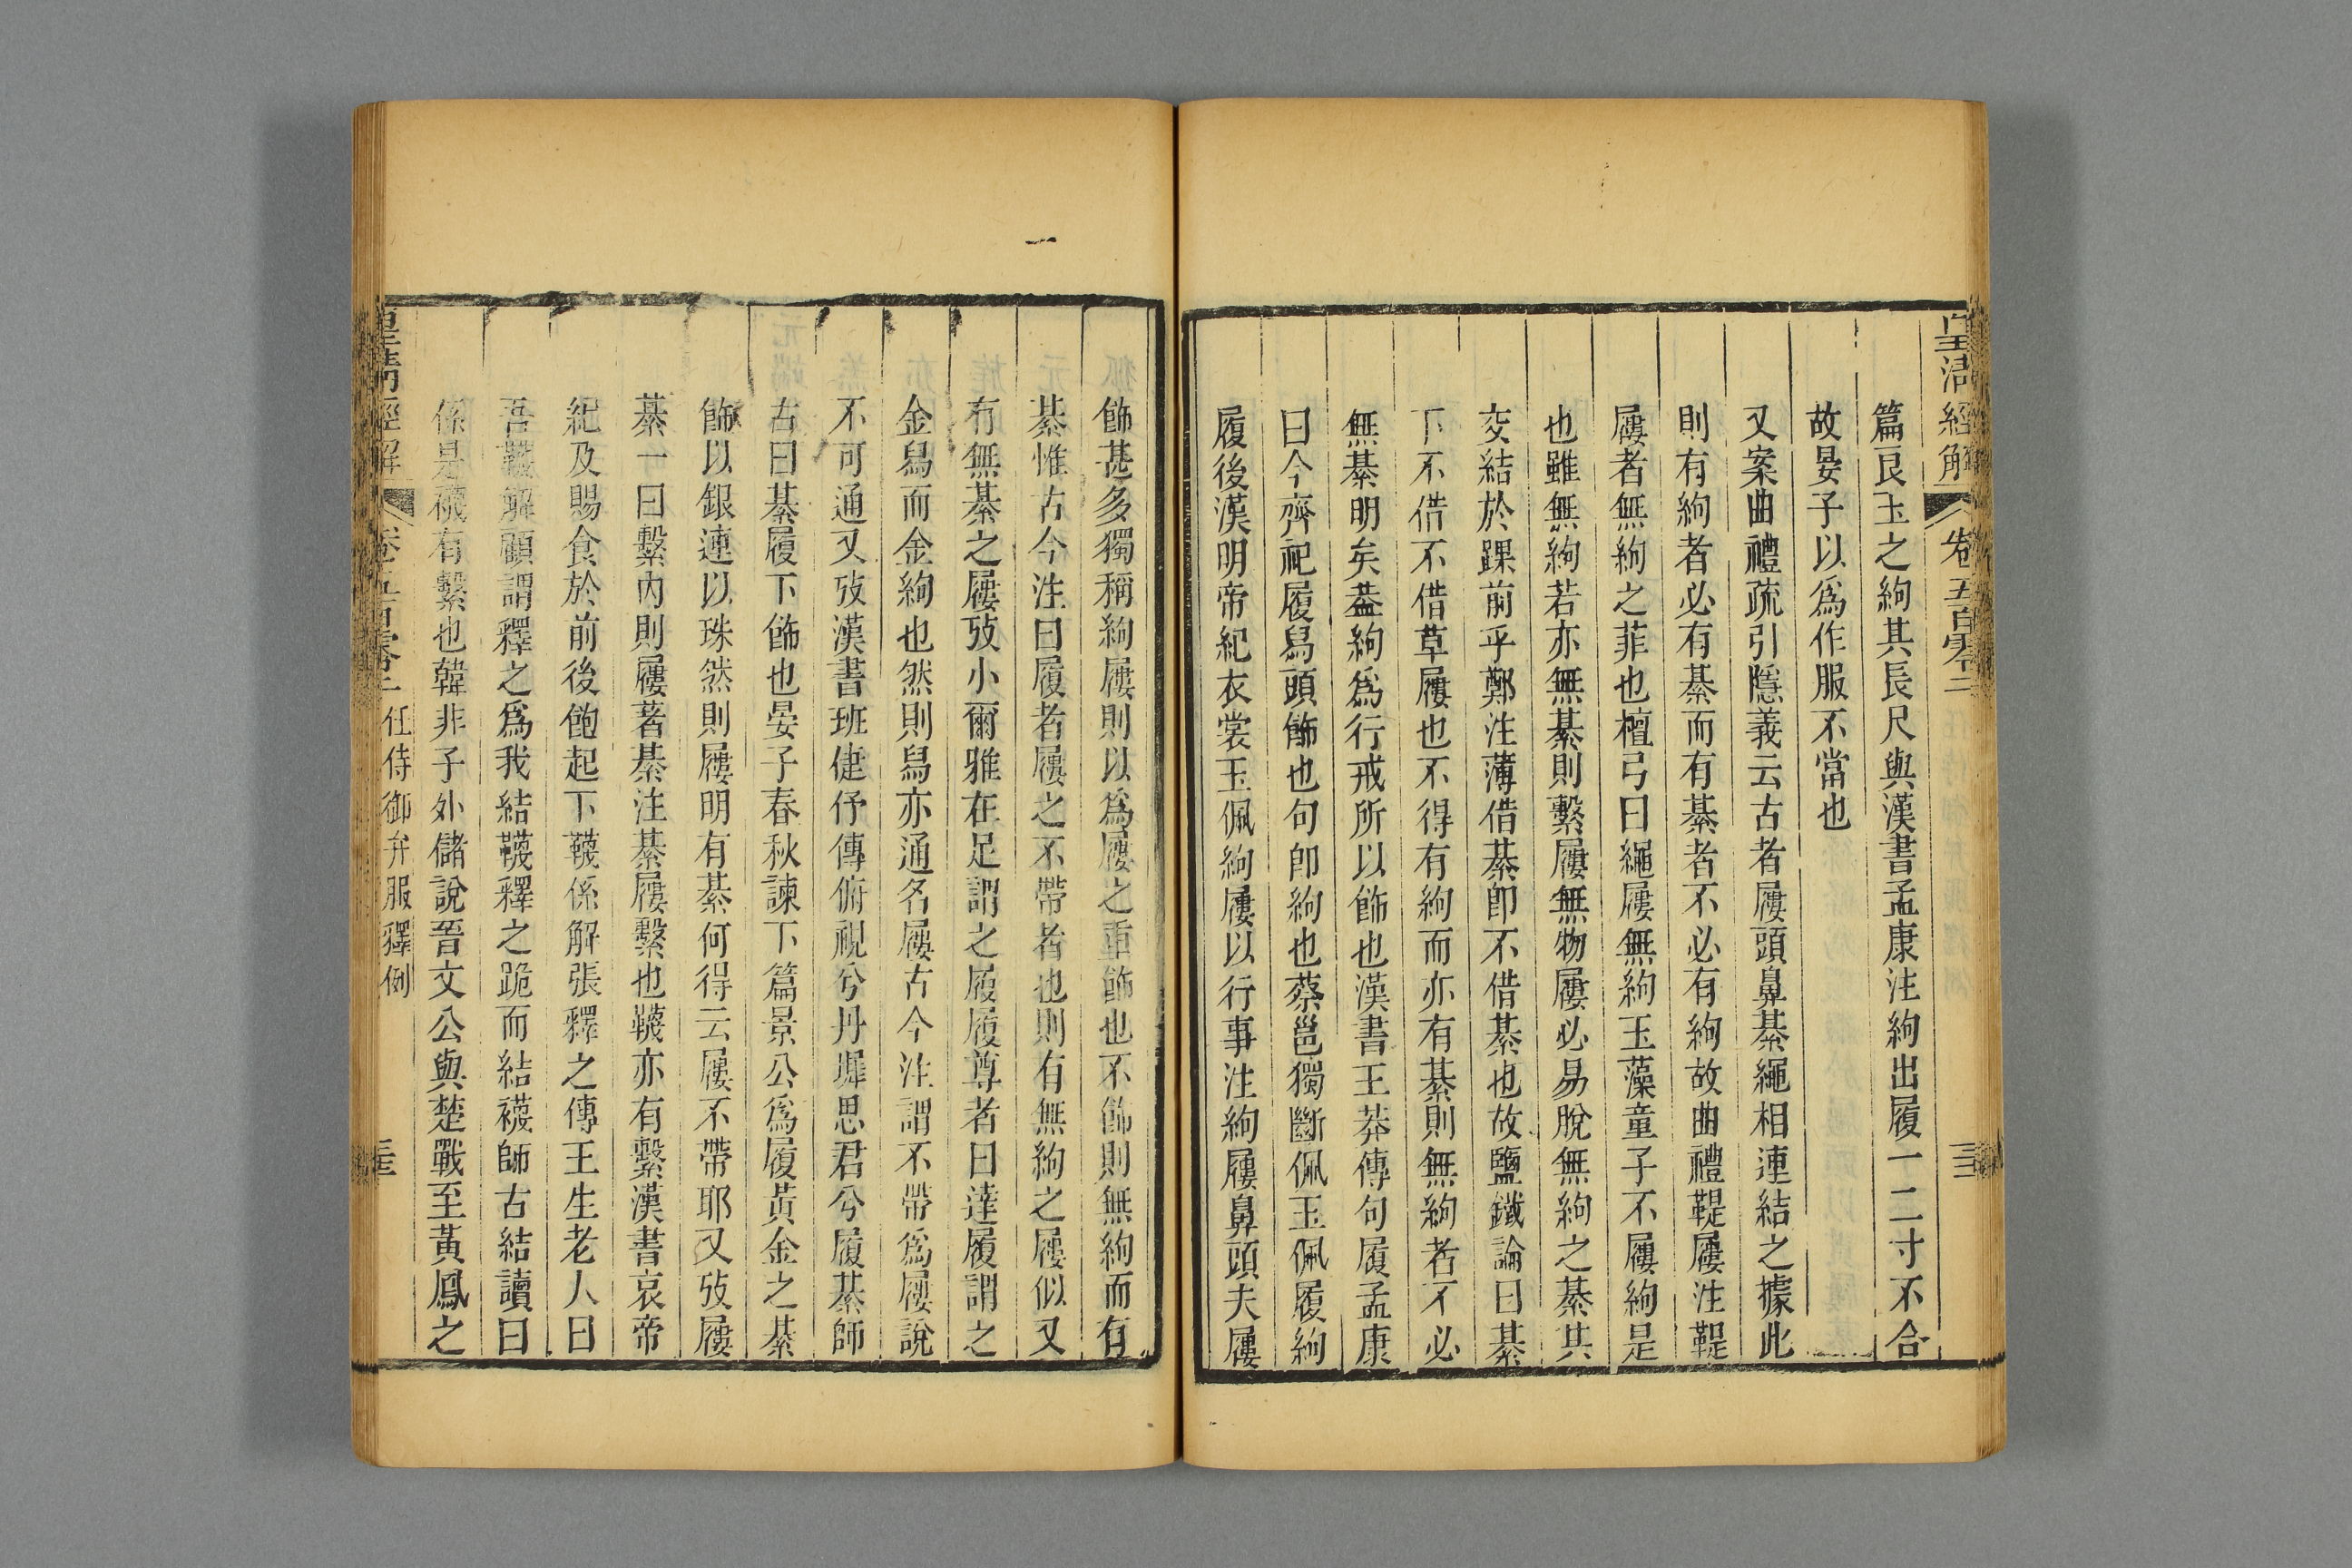 皇清經解 卷五百零二
篇良玉之絇其長尺與漢書孟康注絇出履一二寸不合
故晏子以爲作服不當也
又案曲禮疏引隱義云古者屨頭鼻綦繩相連結之據此
則有絇者必有綦而有綦者不必有絇故曲禮鞮屨注鞮
屨者無絇之菲也檀弓曰繩屨無絇玉藻童子不屨絇是
也雖無絇若亦無綦則繫屨無物屨必易脫無絇之綦其
交結於踝前乎鄭注薄借綦卽不借綦也故鹽鐵論曰綦
下不借不借草屨也不得有絇而亦有綦則無絇者不必
無綦明矣葢絇爲行戒所以飾也漢書王莽傳句履孟康
曰今齊祀履舄頭飾也句卽絇也蔡邕獨斷佩玉佩履絇
履後漢明帝紀衣裳玉佩絇屨以行事注絇屨鼻頭夫屨
飾甚多獨稱絇屨則以爲屨之重飾也不飾則無絇而有
綦惟古今注曰履者屨之不帶者也則有無絇之屨似又
有無綦之屨攷小爾雅在足謂之履履尊者曰達履謂之
金舄而金絇也然則舄亦通名屨古今注謂不帶爲屨說
不可通又攷漢書班倢伃傳俯視兮丹墀思君兮履綦師
古曰綦履下飾也晏子春秋諫下篇景公爲履黃金之綦
飾以銀連以珠然則屨明有綦何得云屨不帶耶又攷屨
綦一曰繫內則屨著綦注綦屨繫也韤亦有繫漢書哀帝
紀及賜食於前後飽起下韤係解張釋之傳王生老人曰
吾韤解顧謂釋之爲我結韤釋之跪而結襪師古結讀曰
係是襪有繫也韓非子外儲說晉文公與楚戰至黃鳳之
皇清經解 卷五百零二 任侍御弁服釋例